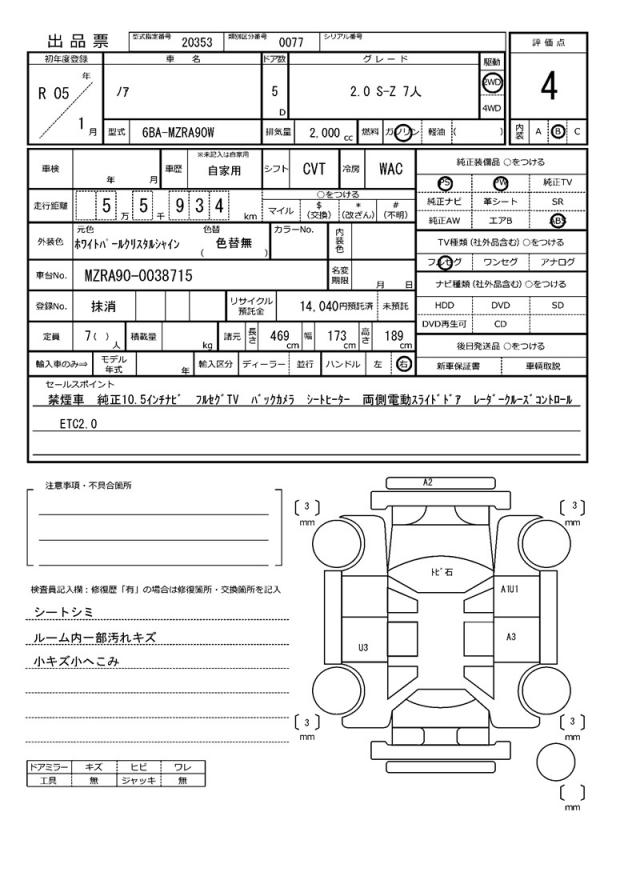 出品票 型式指定番号 20353 類別区分番号 0077 シリアル番号
評価点
4
内装 A B C
初年度登録 車名 ドア数 グレード 駆動
R 05 年 1 月 ノア 5 D 2.0 S-Z 7人 2WD 4WD
型式 6BA-MZRA90W 排気量 2,000 cc 燃料 ガソリン 軽油 ( )
車検 年 月 車歴 ※未記入は自家用 自家用 シフト CVT 冷房 WAC
走行距離 5 万 5 千 9 3 4 km ○をつける
マイル $(交換) *(改ざん) #(不明)
外装色 元色 ホワイトパールクリスタルシャイン 色替 ( 色替無 ) カラーNo. 内装色
車台No. MZRA90-0038715 名変期限 月 日
登録No. 抹消 リサイクル預託金 14,040円預託済 未預託
定員 7( ) 人 積載量 kg 諸元 長さ 469 cm 幅 173 cm 高さ 189 cm
輸入車のみ⇒ モデル年式 年 輸入区分 ディーラー 並行 ハンドル 左 右
純正装備品 ○をつける
PS PW 純正TV
純正ナビ 革シート SR
純正AW エアB ABS
TV種類(社外品含む)○をつける
フルセグ ワンセグ アナログ
ナビ種類(社外品含む)○をつける
HDD DVD SD
DVD再生可 CD
後日発送品 ○をつける
新車保証書 車輌取説
セールスポイント
禁煙車 純正10.5インチナビ フルセグTV バックカメラ シートヒーター 両側電動スライドドア レーダークルーズコントロール
ETC2.0
注意事項・不具合箇所
検査員記入欄:修復歴「有」の場合は修復箇所・交換箇所を記入
シートシミ
ルーム内一部汚れキズ
小キズ小へこみ
ドアミラー キズ ヒビ ワレ
工具 無 ジャッキ 無
A2
[ 3 ] mm
[ 3 ] mm
トビ石
A1U1
U3
A3
[ 3 ] mm
[ 3 ] mm
[ ] mm